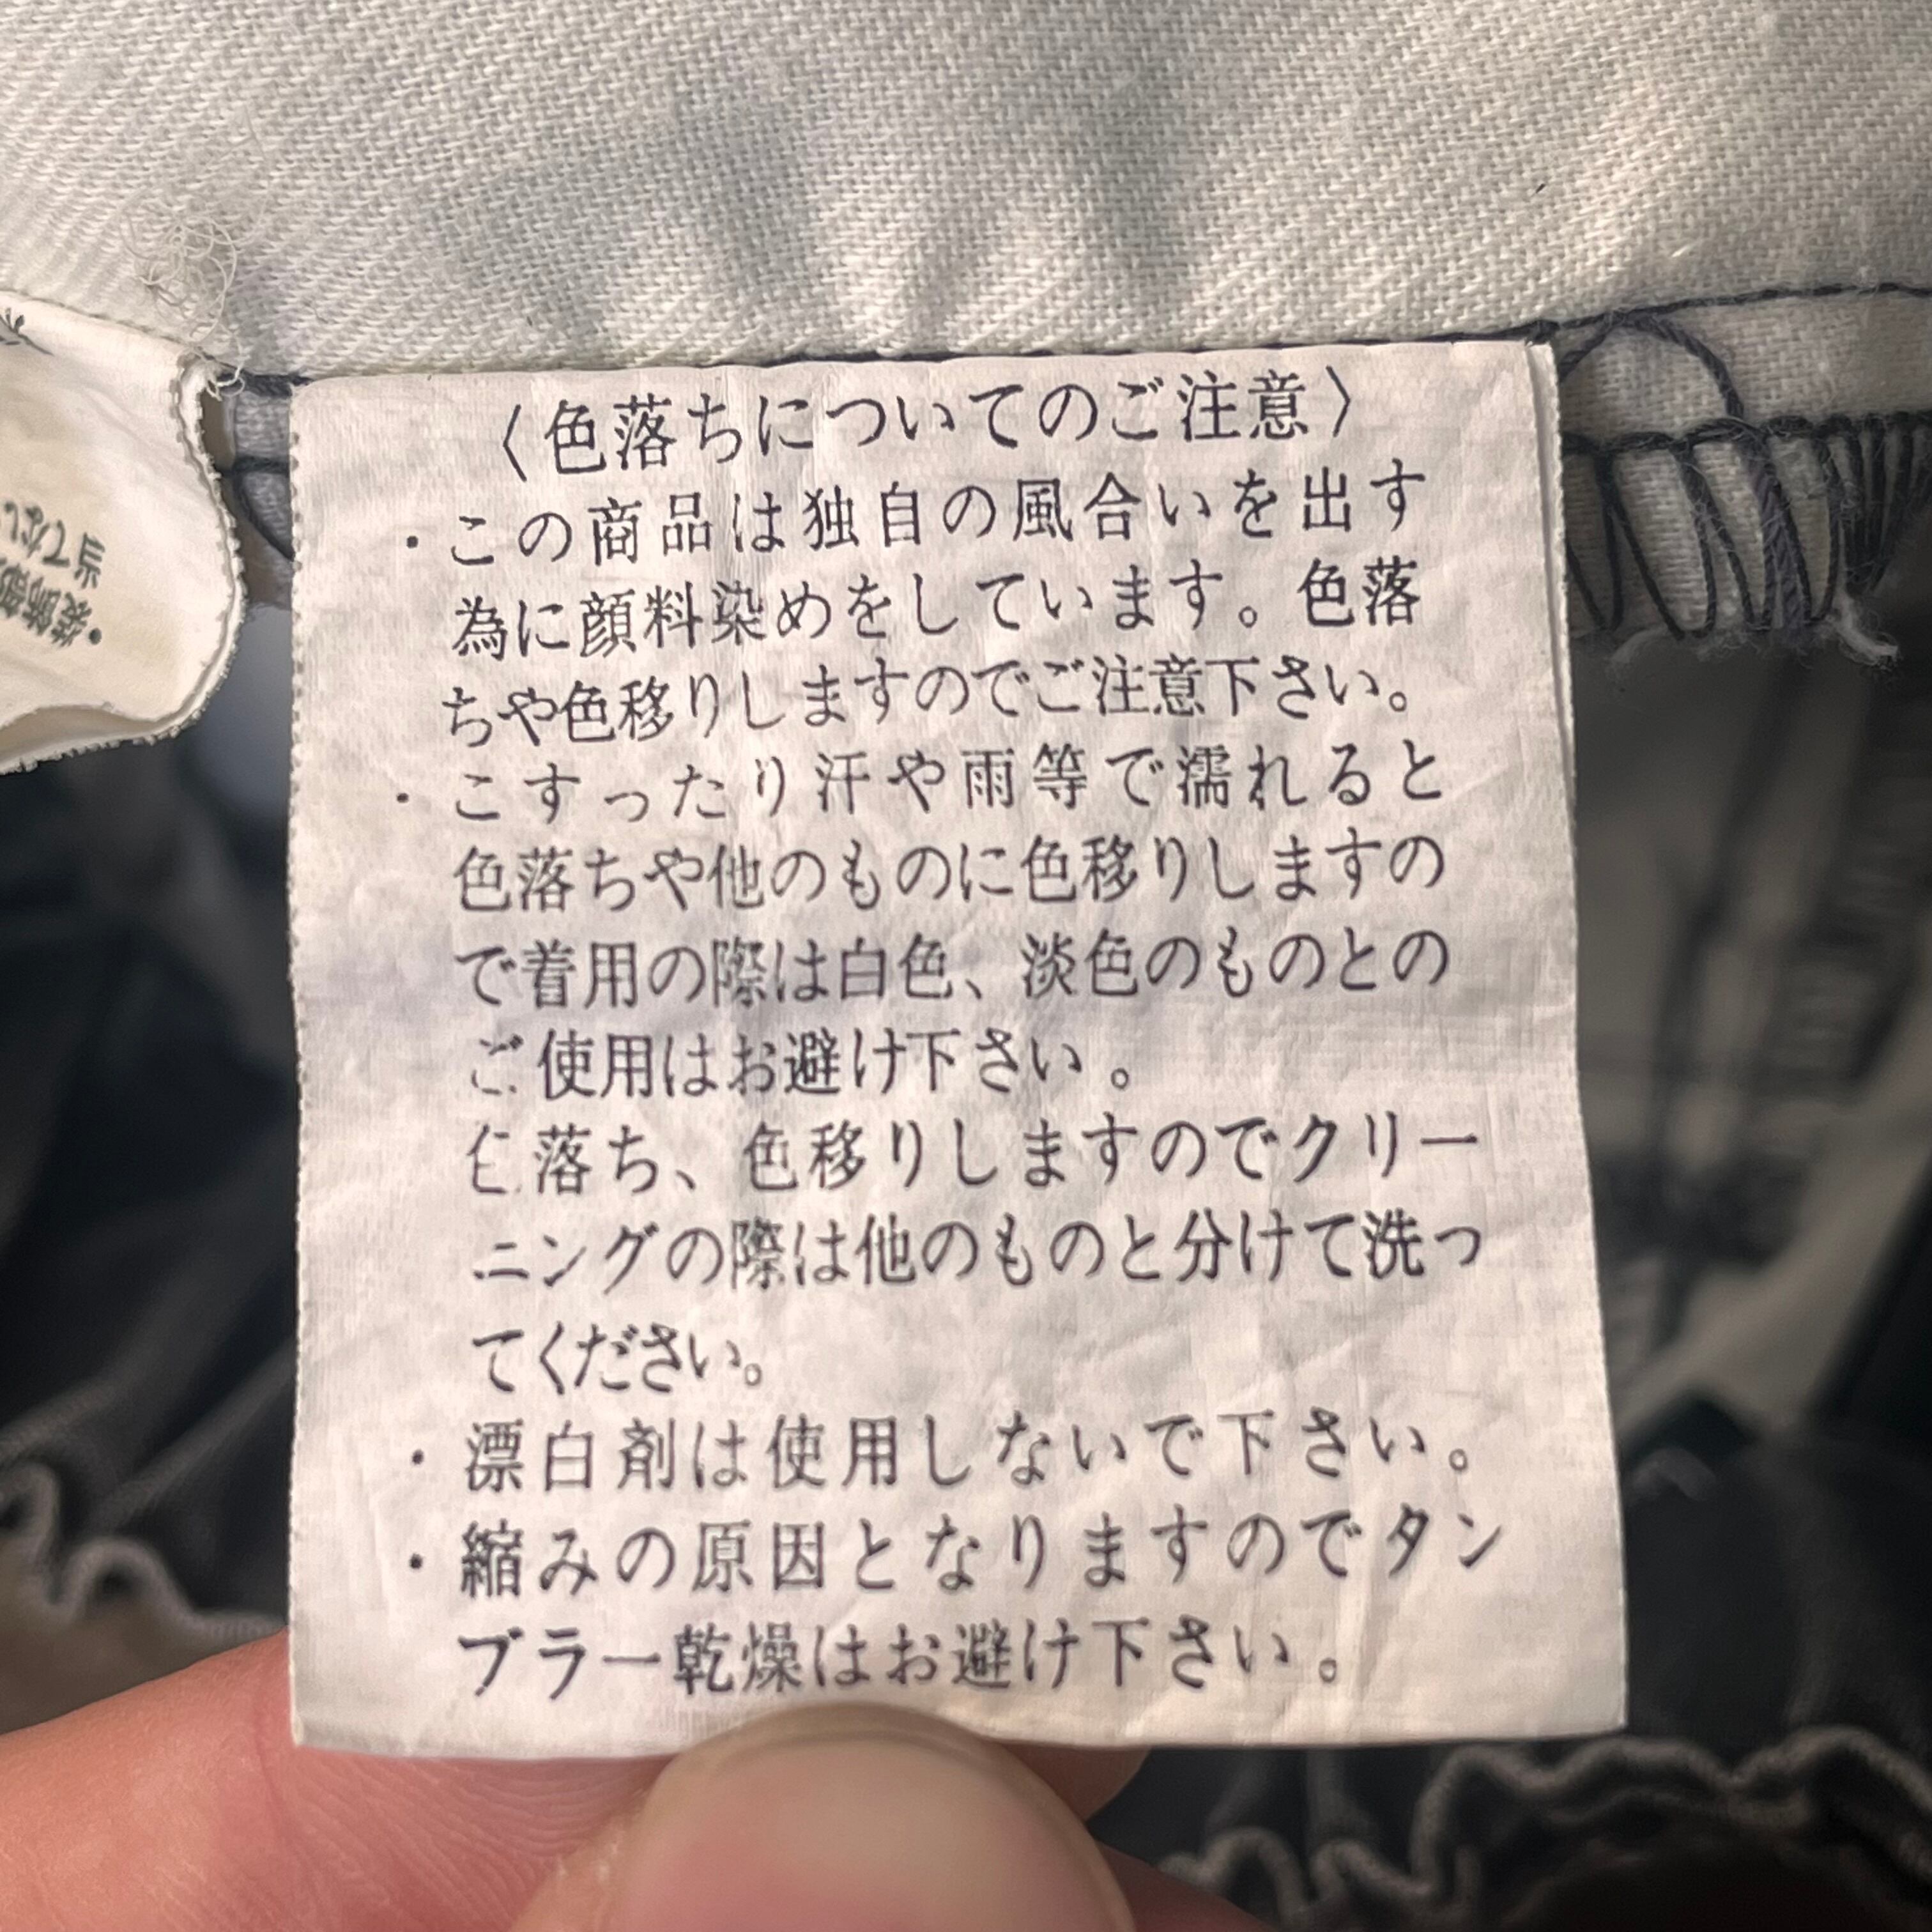 〈色落ちについてのご注意〉
・この商品は独自の風合いを出す
為に顔料染めをしています。色落
ちや色移りしますのでご注意下さい。
・こすったり汗や雨等で濡れると
色落ちや他のものに色移りしますの
で着用の際は白色、淡色のものとの
ご使用はお避け下さい。
色落ち、色移りしますのでクリー
ニングの際は他のものと分けて洗っ
てください。
・漂白剤は使用しないで下さい。
・縮みの原因となりますのでタン
ブラー乾燥はお避け下さい。
当てない
・装飾部